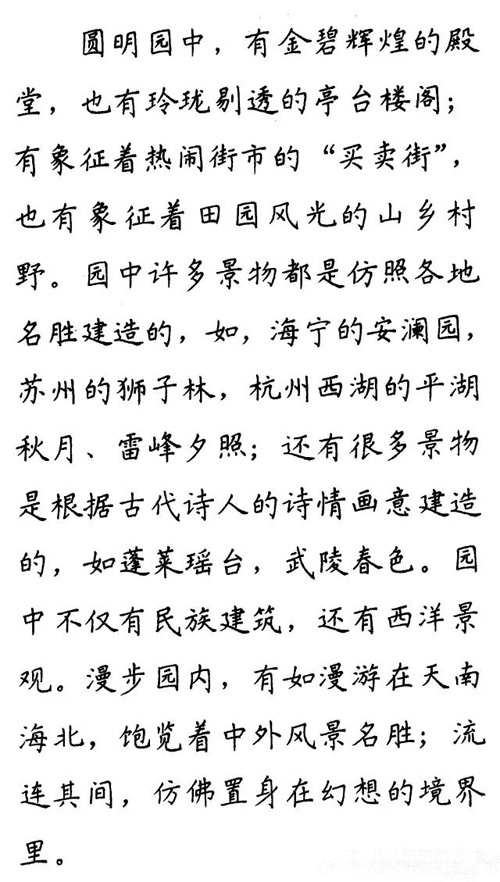 圆明园中，有金碧辉煌的殿
堂，也有玲珑剔透的亭台楼阁；
有象征着热闹街市的“买卖街”，
也有象征着田园风光的山乡村
野。园中许多景物都是仿照各地
名胜建造的，如，海宁的安澜园，
苏州的狮子林，杭州西湖的平湖
秋月、雷峰夕照；还有很多景物
是根据古代诗人的诗情画意建造
的，如蓬莱瑶台，武陵春色。园
中不仅有民族建筑，还有西洋景
观。漫步园内，有如漫游在天南
海北，饱览着中外风景名胜；流
连其间，仿佛置身在幻想的境界
里。